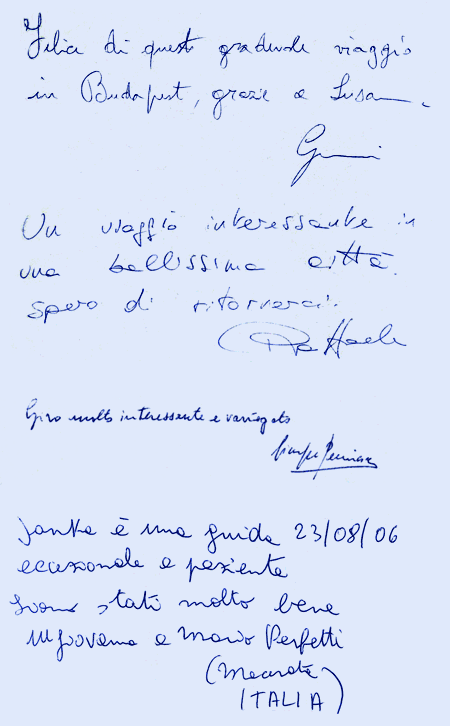 Felici di questo gradevole viaggio
in Budapest, grazie a Susan
Un viaggio interessante in
una bellissima città.
spero di ritornarci.
Raffaele
Giro molto interessante e variegato
è una guida 23/08/06
eccezionale e paziente
Siamo stati molto bene
e Mario Perfetti
(Macerata
ITALIA)